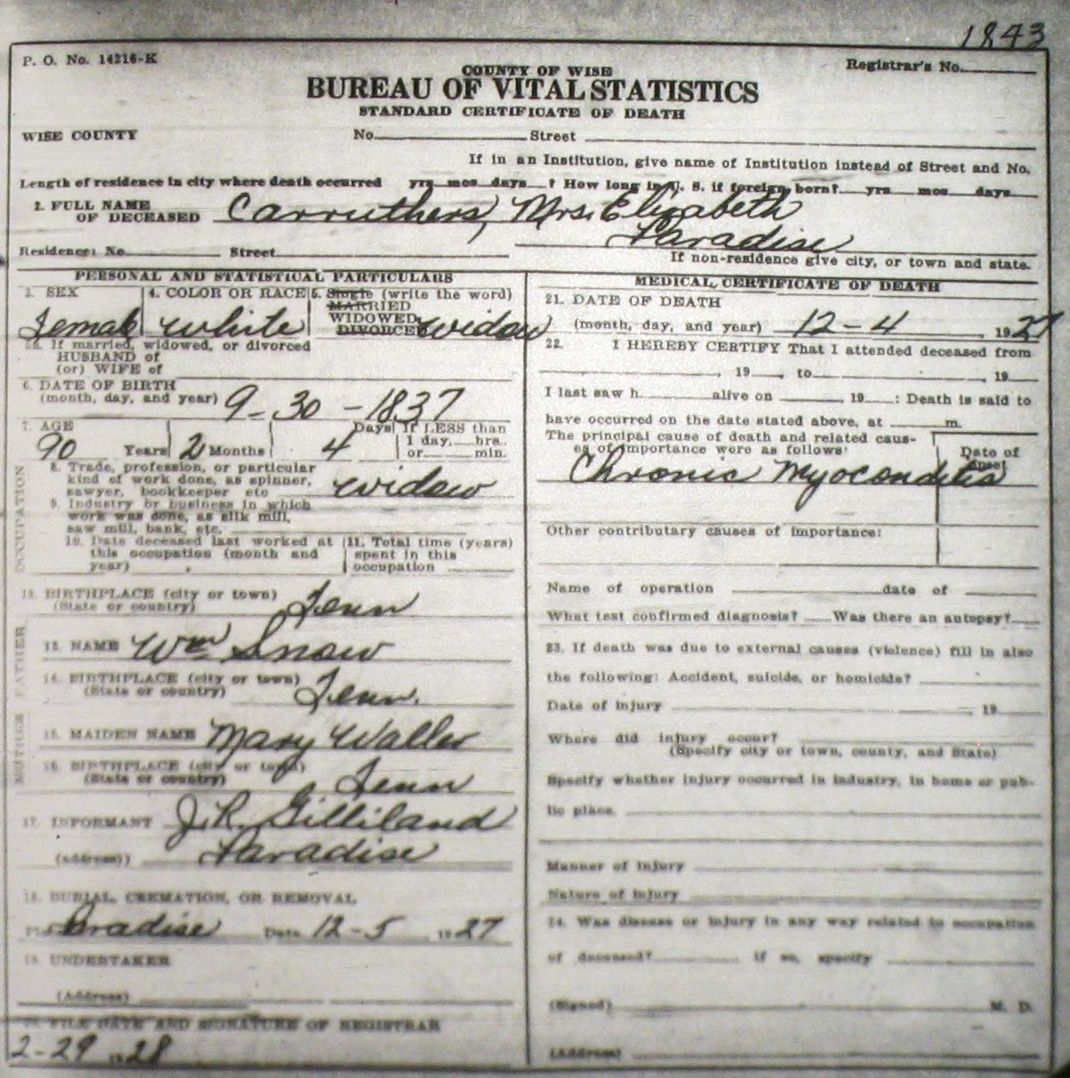 1843
P. O. No. 14216-K
Registrar's No.
COUNTY OF WISE
BUREAU OF VITAL STATISTICS
STANDARD CERTIFICATE OF DEATH
WISE COUNTY No. Street
If in an Institution, give name of Institution instead of Street and No.
Length of residence in city where death occurred yrs mos days ? How long in U. S. if foreign born? yrs mos days
2. FULL NAME OF DECEASED Carruthers, Mrs. Elizabeth
Paradise
Residence: No. Street
If non-residence give city, or town and state.
PERSONAL AND STATISTICAL PARTICULARS
3. SEX 4. COLOR OR RACE 5. Single (write the word)
MARRIED
WIDOWED
DIVORCED
Female White widow
If married, widowed, or divorced
HUSBAND of
(or) WIFE of
6. DATE OF BIRTH
(month, day, and year) 9-30-1837
7. AGE Days If LESS than
90 Years 2 Months 4 1 day, hrs.
or min.
OCCUPATION
8. Trade, profession, or particular
kind of work done, as spinner,
sawyer, bookkeeper etc widow
9. Industry or business in which
work was done, as silk mill,
saw mill, bank, etc.
10. Date deceased last worked at 11. Total time (years)
this occupation (month and spent in this
year) occupation
12. BIRTHPLACE (city or town)
(State or country) Tenn
FATHER
13. NAME Wm Snow
14. BIRTHPLACE (city or town)
(State or country) Tenn.
MOTHER
15. MAIDEN NAME Mary Waller
16. BIRTHPLACE (city or town)
(State or country) Tenn
17. INFORMANT J.R. Gilliland
(Address)) Paradise
18. BURIAL, CREMATION, OR REMOVAL
Paradise Date 12-5 1927
19. UNDERTAKER
(Address)
20. FILE DATE AND SIGNATURE OF REGISTRAR
2-29 1928
MEDICAL CERTIFICATE OF DEATH
21. DATE OF DEATH
(month, day, and year) 12-4 1927
22. I HEREBY CERTIFY That I attended deceased from
, 19 , to , 19
I last saw h alive on , 19 : Death is said to
have occurred on the date stated above, at m.
The principal cause of death and related caus-
es of importance were as follows: Date of
Onset
Chronic Myocarditis
Other contributary causes of importance:
Name of operation date of
What test confirmed diagnosis? Was there an autopsy?
23. If death was due to external causes (violence) fill in also
the following: Accident, suicide, or homicide?
Date of injury , 19
Where did injury occur?
(Specify city or town, county, and State)
Specify whether injury occurred in industry, in home or pub-
lic place.
Manner of injury
Nature of injury
24. Was disease or injury in any way related to occupation
of deceased? If so, specify
(Signed) M. D.
(Address)